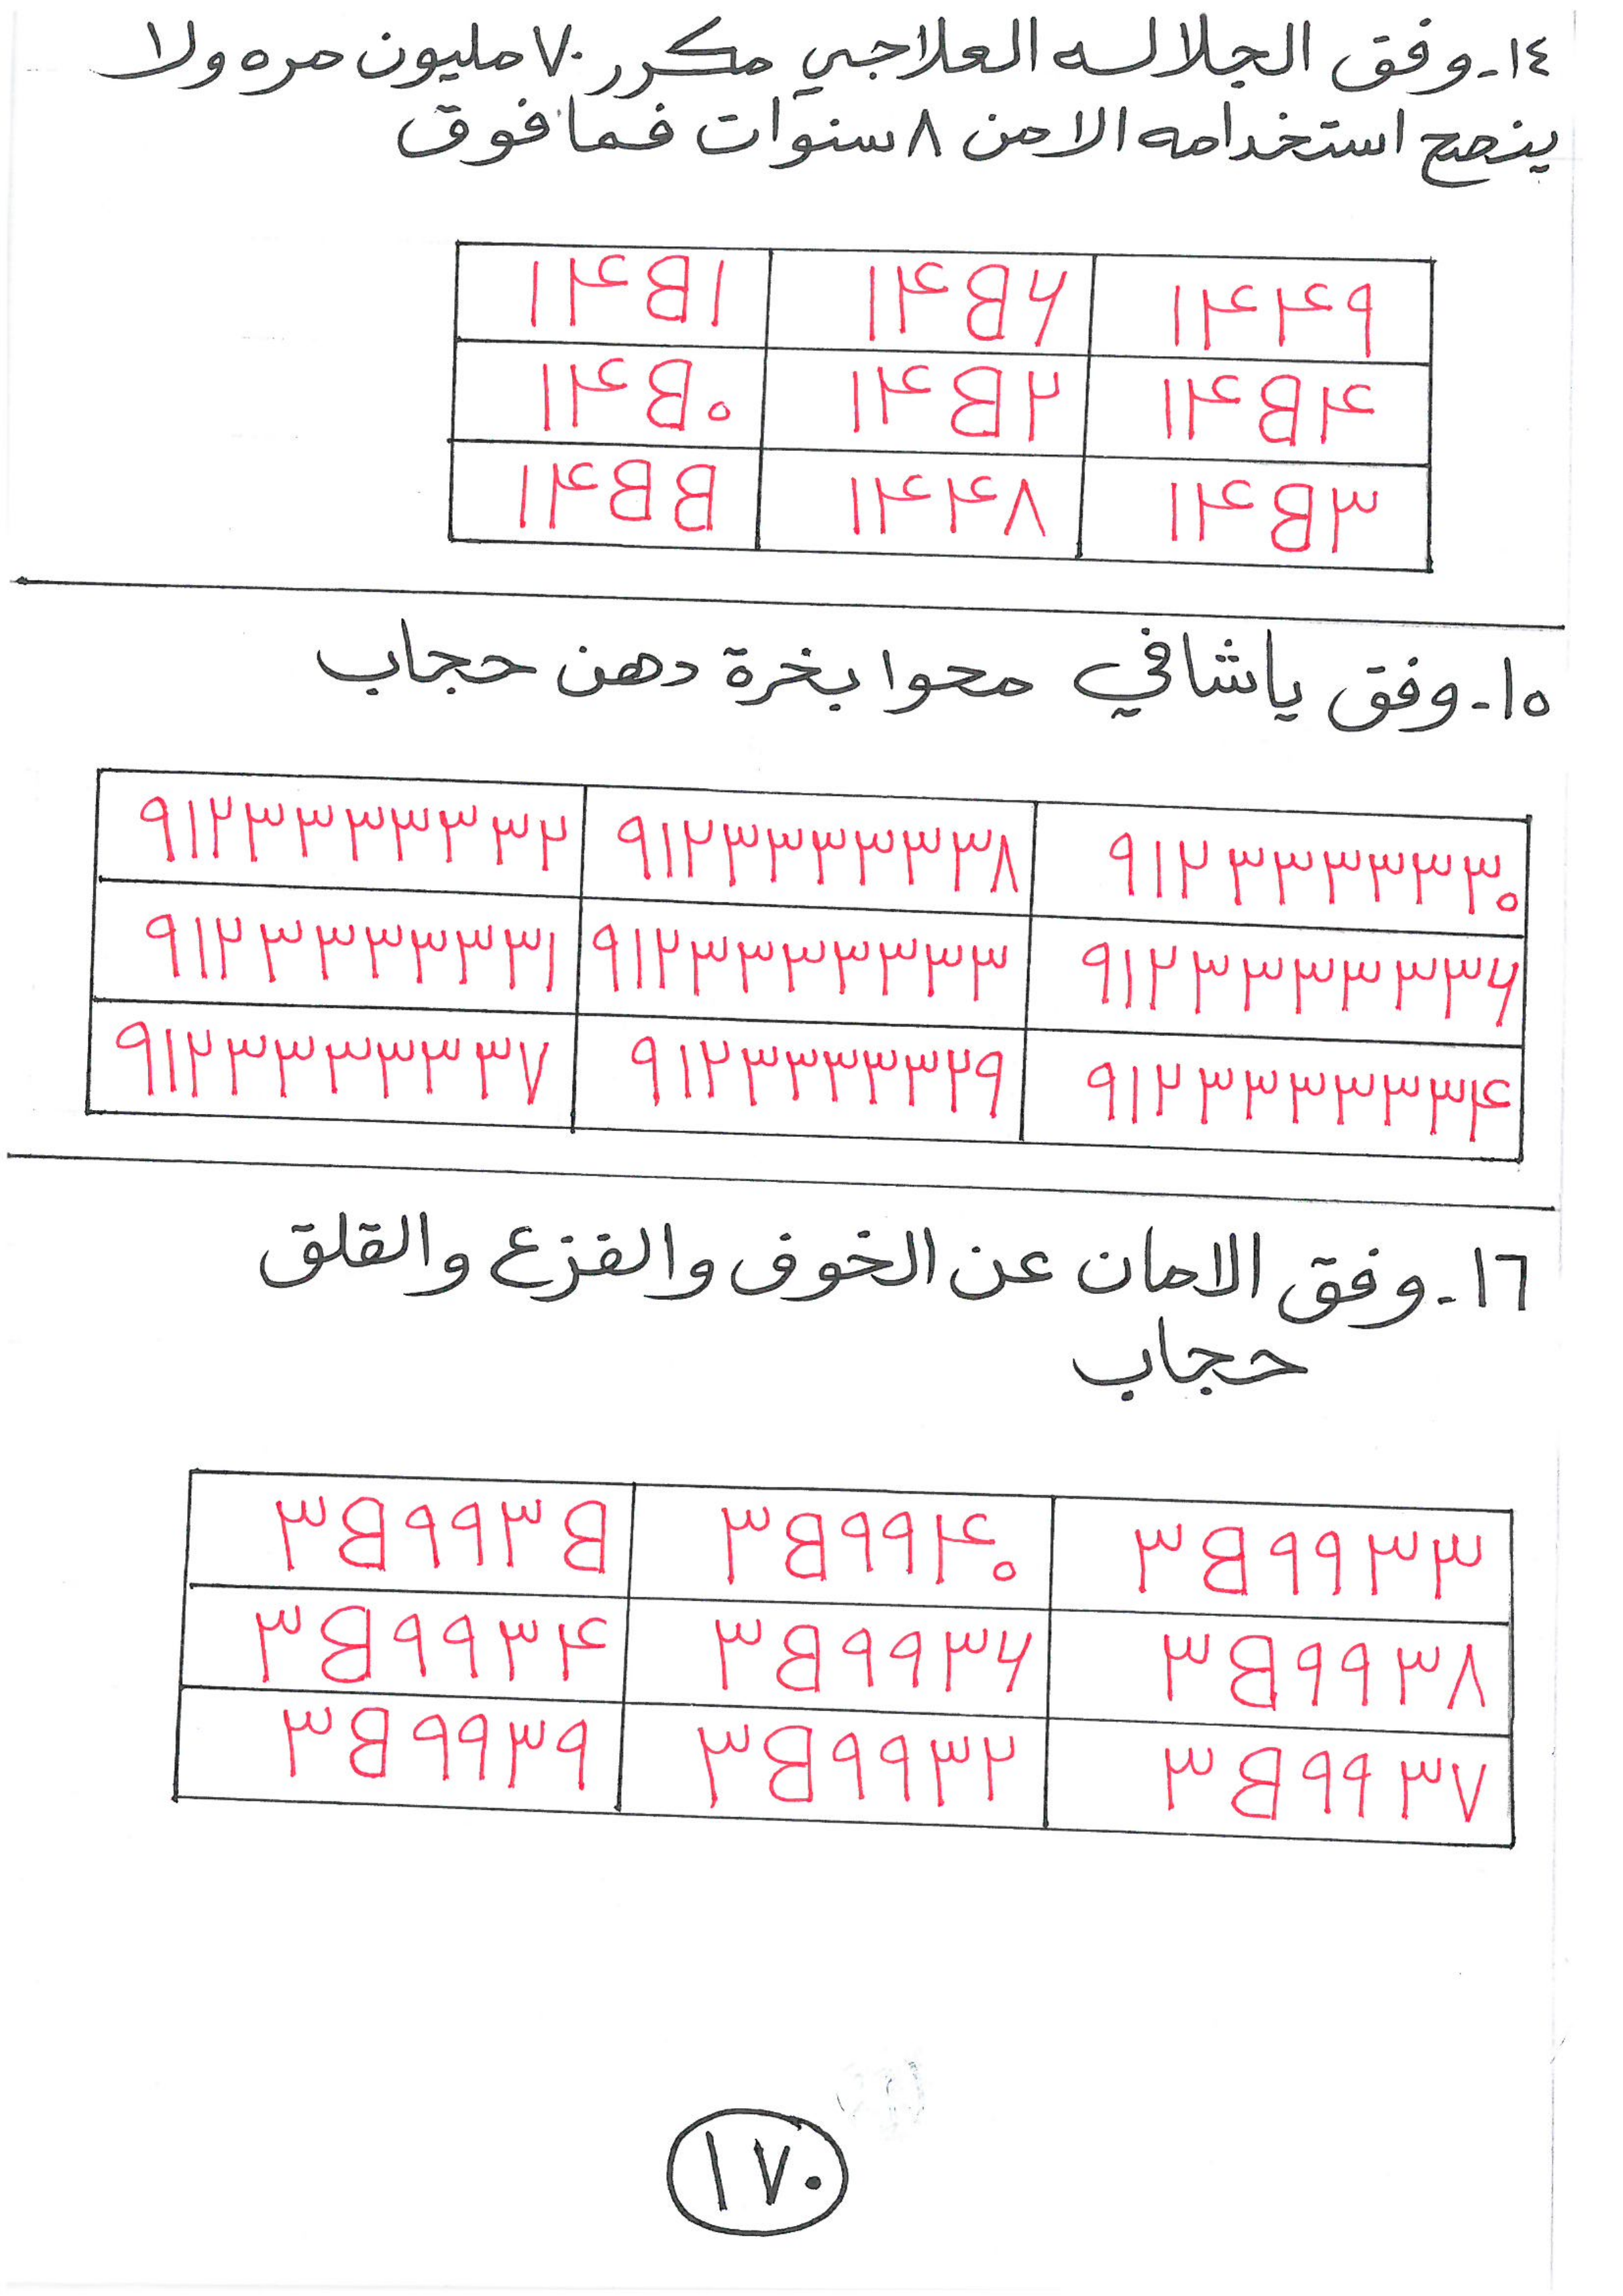 ١٤- وفق الجلاله العلاجي مكرر ٧٠ مليون مره ولا
ينصح استخدامه الا من ٨ سنوات فما فوق
١٤B١ ١٤B٦ ١٤٤٩
١٤B٠ ١٤B٢ ١٤B٤
١٤BB ١٤٤٨ ١٤B٣
١٥- وفق ياشافي محوا بخرة دهن حجاب
٩١٢٣٣٣٣٣٢ ٩١٢٣٣٣٣٣٨ ٩١٢٣٣٣٣٣٠
٩١٢٣٣٣٣٣١ ٩١٢٣٣٣٣٣٣ ٩١٢٣٣٣٣٣٦
٩١٢٣٣٣٣٣٧ ٩١٢٣٣٣٣٢٩ ٩١٢٣٣٣٣٣٤
١٦- وفق الامان عن الخوف والفزع والقلق
حجاب
٣B٩٩٣B ٣B٩٩٤٠ ٣B٩٩٣٣
٣B٩٩٣٤ ٣B٩٩٣٦ ٣B٩٩٣٨
٣B٩٩٣٩ ٣B٩٩٣٢ ٣B٩٩٣٧
١٧٠